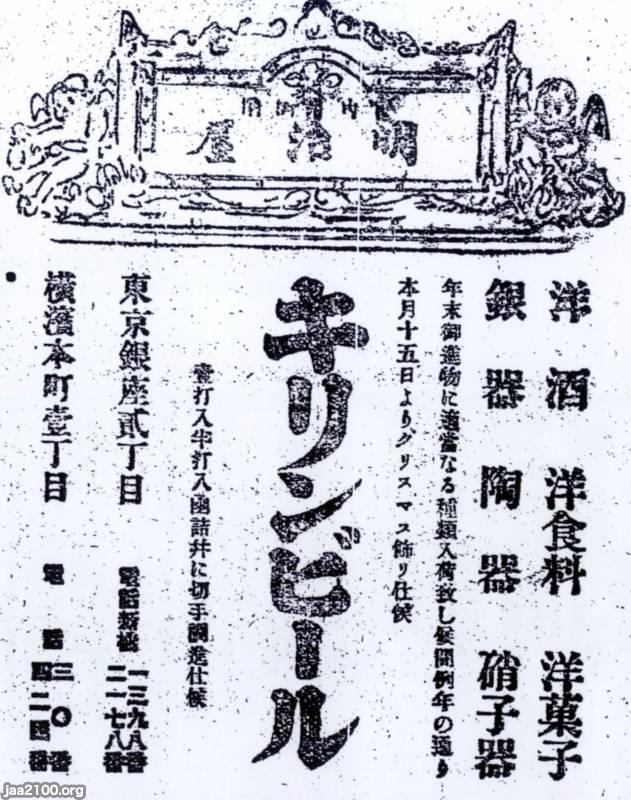 明治屋
洋酒 洋食料 洋菓子
銀器 陶器 硝子器
年末御進物に適當なる種類入荷致し候間例年の通り
本月十五日よりクリスマス飾り仕候
キリンビール
壹打入半打入函詰幷に切手調進仕候
東京銀座貳丁目 電話新橋 一三九八番
二一七八番
横濱本町壹丁目 電話 三〇番
四二四番
jaa2100.org